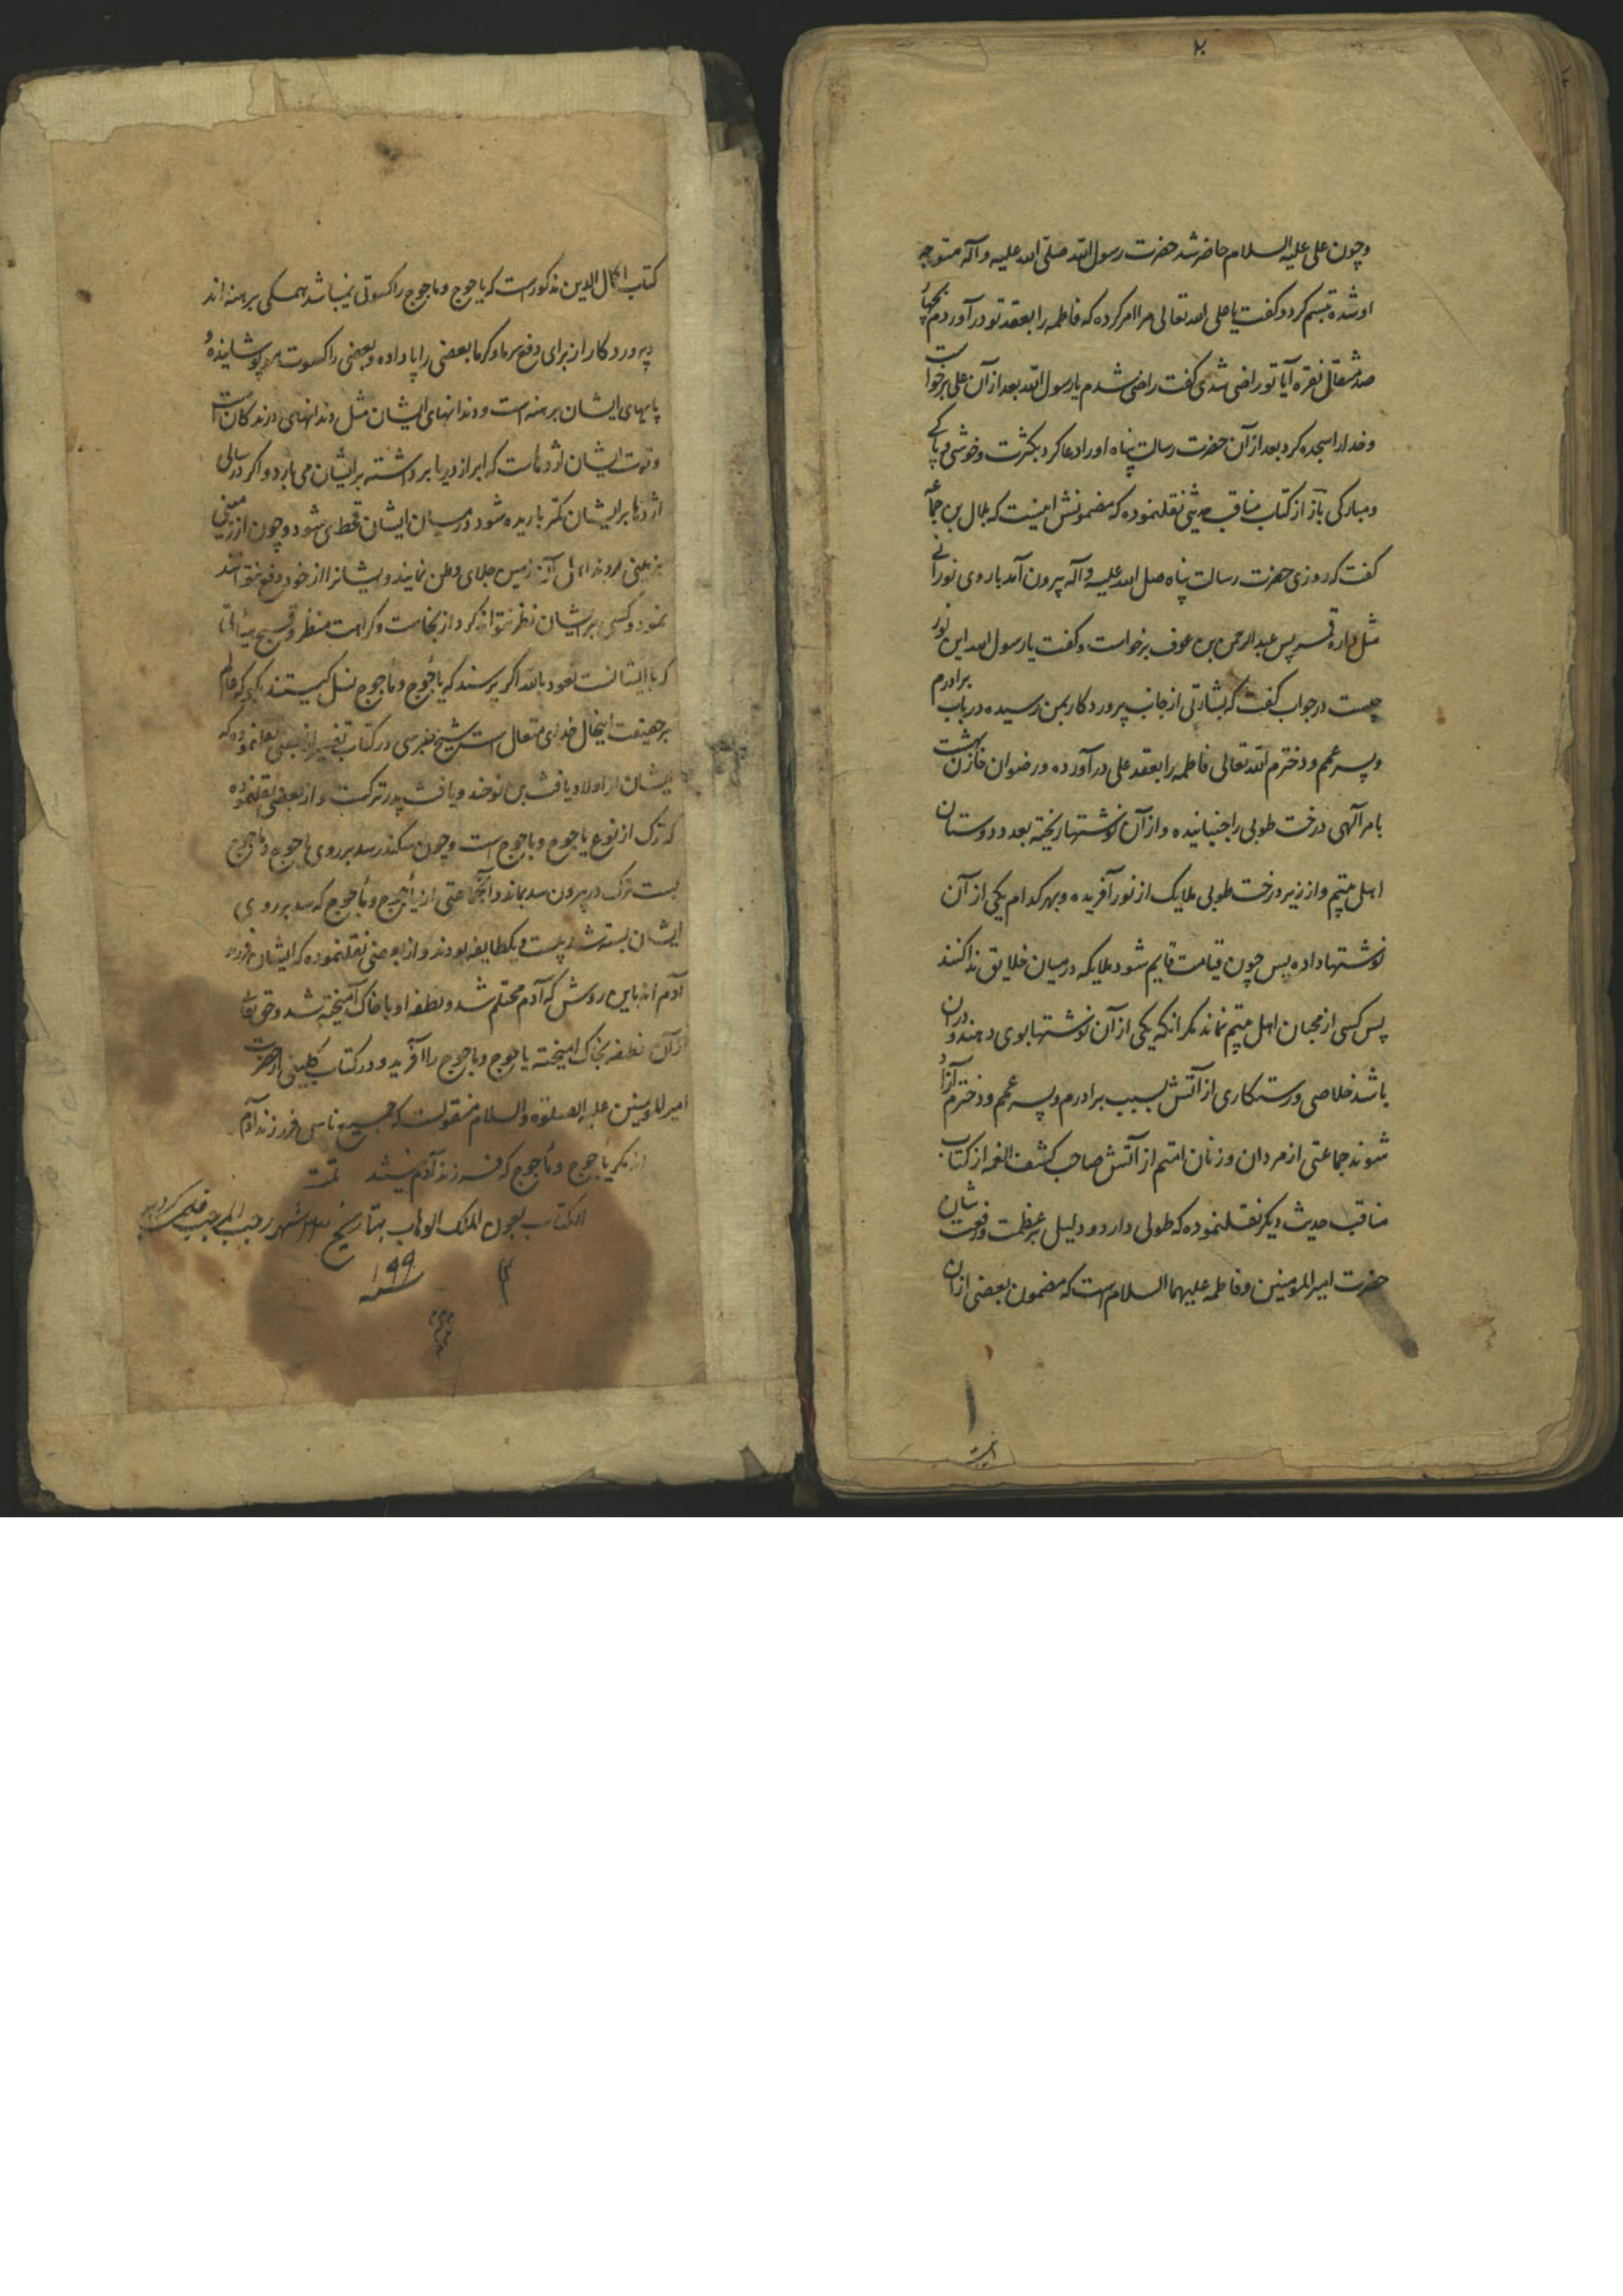 ٢
وچون علی علیه السلام حاضر شد حضرت رسول الله صلی الله علیه وآله متوجه
او شده تبسم کرد و کفت یا علی الله تعالی مرا امر کرده که فاطمه را بعقد تو درآوردم بچهار
صد مثقال نقره آیا تو راضی شدی کفت راضی شدم یا رسول الله بعد از آن علی برخواست
وخدا را سجده کرد بعد از آن حضرت رسالت پناه او را دعا کرد بکثرت وخوشی و پاکی
ومبارکی باز از کتاب مناقب حدیثی نقلنموده که مضمونش اینست که بلال بن حمامه
کفت که روزی حضرت رسالت پناه صلی الله علیه وآله بیرون آمد با روی نورانی
مثل داره قمر پس عبد الرحمن بن عوف برخواست وکفت یا رسول الله این نور
چیست در جواب کفت که بشارتی از جانب پروردکار بمن رسیده در باب برادرم
وپسر عمم ودخترم الله تعالی فاطمه را بعقد علی درآورده ورضوان خازن بهشت
بامر آلهی درخت طوبی را جنبانیده واز آن نوشتها ریخته بعدد دوستان
اهل بیتم واز زیر درخت طوبی ملایک از نور آفریده وبهر کدام یکی از آن
نوشتها داده پس چون قیامت قایم شود ملایکه در میان خلایق ندا کنند
پس کسی از محبان اهل بیتم نماند مکر آنکه یکی از آن نوشتها بوی دهند و در آن
باشد خلاصی ورستکاری از آتش بسبب برادرم وپسر عمم ودخترم آزاد
شوند جماعتی از مردان وزنان امتم از آتش صاحب کشف الغمه از کتاب
مناقب حدیث دیکر نقلنموده که طولی دارد ودلیل بر عظمت ورفعت شان
حضرت امیر المومنین وفاطمه علیهما السلام است که مضمون بعضی از آن
کتاب اکمال الدین مذکور است که یاجوج وماجوج را کسوتی نمیباشد همکی برهنه اند
وپروردکار از برای دفع سرما وکرما بعضی را پا داده وبعضی را کسوت
پایهای ایشان برهنه است ودندانهای ایشان مثل دندانهای درندکان است
وقوت ایشان اژدهاست که ابر از دریا برداشته بر ایشان می بارد واکر در سالی
اژدها بر ایشان کمتر باریده شود در میان ایشان قحط می شود وچون از زمینی
بزمینی روند آن زمین جلای وطن نمایند وایشانرا از خود دفع نتوانند
نمود وکسی بر ایشان نظر نتواند کرد از نجاست وکراهت منظر وقبح هیأتی
که با ایشانست نعوذ بالله اکر پرسند که یاجوج وماجوج نسل کیستند بکو که عالم
بر حقیقت اینحال خدای متعال است شیخ طبرسی در کتاب تفسیر از بعضی نقلنموده که
ایشان از اولاد یافث بن نوحند ویافث پدر ترکست واز بعضی نقلنموده
که ترک از نوع یاجوج وماجوج است وچون سکندر سد بر روی یاجوج وماجوج
بست ترک در بیرون سد بماند وآنجماعتی از یأجوج ومأجوج که سد بر روی
ایشان بسته شد بیست و یکطایفه بودند واز بعضی نقلنموده که ایشان فرزند
آدم اند باین روش که آدم محتلم شد ونطفه او با خاک آمیخته شد وحق تعالی
از آن نطفه بخاک آمیخته یاجوج وماجوج را آفرید ودر کتاب کلینی از حضرت
امیر المومنین علیه الصلوة والسلام منقولست که جمیع ناس فرزند آدم
اند مکر یأجوج ومأجوج که فرزند آدم نیستند تمت
الکتاب بعون الملک الوهاب بتاریخ شهر رجب المرجب قلمی کردید
سنه ١٩٩